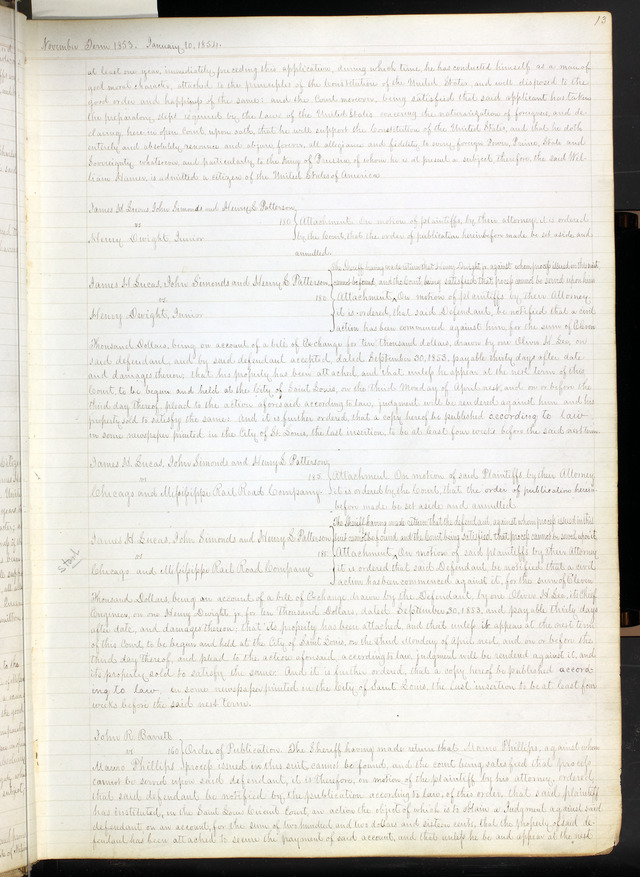 12
November Term 1853. January 10, 1854.
at least one year, immediately preceding this application, during which time, he has conducted himself as a man of
good moral character, attached to the principles of the Constitution of the United States, and well disposed to the
good order and happiness of the same: and the Court moreover, being satisfied that said applicant has taken
the preparatory steps required by the Laws of the United States concerning the naturalization of foreigners, and de-
claring here, in open Court upon oath, that he will support the Constitution of the United States, and that he doth
entirely and absolutely, renounce and abjure forever, all allegiance and fidelity to every foreign Power, Prince, State and
Sovereignty whatsoever and particularly to the King of Prussia of whom he is at present a subject, therefore, the said Wil-
liam is admitted a citizen of the United States of America
James H. Lucas, John Simonds and Henry L. Patterson,
vs 180. Attachment. On motion of plaintiffs, by their attorney, it is ordered
Henry Dwight, Junior by the Court, that the order of publication heretofore made be set aside and
annulled.
The Sheriff having made return that Henry Dwight, jr. against whom process issued in this suit
James H. Lucas, John Simonds and Henry L. Patterson, cannot be found, and the Court being satisfied that process cannot be served upon him
vs. 180. Attachment, On motion of plaintiffs by their Attorney
Henry Dwight, Junior it is ordered, that said Defendant, be notified that a civil
action has been commenced against him, for the sum of Eleven
Thousand Dollars, being on account of a bill of Exchange for ten thousand dollars, drawn by one Oliver H. Lee, on
said defendant, and by said defendant accepted, dated September 30, 1853, payable thirty days after date
and damages thereon; that his property has been attached, and that unless he appear at the next term of this
Court, to be begun and held at the City of Saint Louis, on the third Monday of April next, and on or before the
third day thereof, plead to the action aforesaid according to law, judgment will be rendered against him and his
property sold to satisfy the same: And it is further ordered, that a copy hereof be published according to law
in some newspaper printed in the City of St. Louis, the last insertion, to be at least four weeks before the said next term.
James H. Lucas, John Simonds and Henry L. Patterson,
vs 182. Attachment. On motion of said Plaintiffs by their Attorney
Chicago and Mississippi Rail Road Company. it is ordered by the Court, that the order of publication herein
before made be set aside and annulled.
The Sheriff having made return that the defendant against whom process issued in this
James H. Lucas, John Simonds and Henry L. Patterson suit cannot be found, and the Court being satisfied, that process cannot be served upon it
vs Attachment, On motion of said plaintiffs by their Attorney
Chicago and Mississippi Rail Road Company it is ordered that said Defendant be notified that a civil
action has been commenced against it, for the sum of Eleven
Thousand Dollars, being on account of a bill of Exchange drawn by the Defendant, by one Oliver H. Lee, its Chief
Engineer, on one Henry Dwight jr. for ten Thousand Dollars, dated September 30, 1853, and payable thirty days
after date, and damages thereon; that its property has been attached and that unless it appear at the next term
of this Court to be begun and held at the City of Saint Louis, on the third Monday of April next and on or before the
third day thereof, and plead to the action aforesaid, according to law, judgment will be rendered against it, and
its property sold to satisfy the same. And it is further ordered, that a copy hereof be published accord-
ing to law, in some newspaper printed in the City of Saint Louis, the last insertion to be at least four
weeks before the said next term.
John R. Barrett
vs 160. Order of Publication. The Sheriff having made return that Maurice Phillips, against whom
Phillips process issued in this suit, cannot be found, and the court being satisfied that process
cannot be served upon said defendant, it is therefore, on motion of the plaintiff by his attorney, ordered,
that said defendant be notified by the publication according to law, of this order, that said plaintiff
has instituted, in the Saint Louis Circuit Court, an action the object of which is to obtain a Judgment against said
defendant on an account, for the sum of two hundred and two dollars and sixteen cents, that the property of said de-
fendant has been attached to secure the payment of said account, and that unless he be and appear at the next